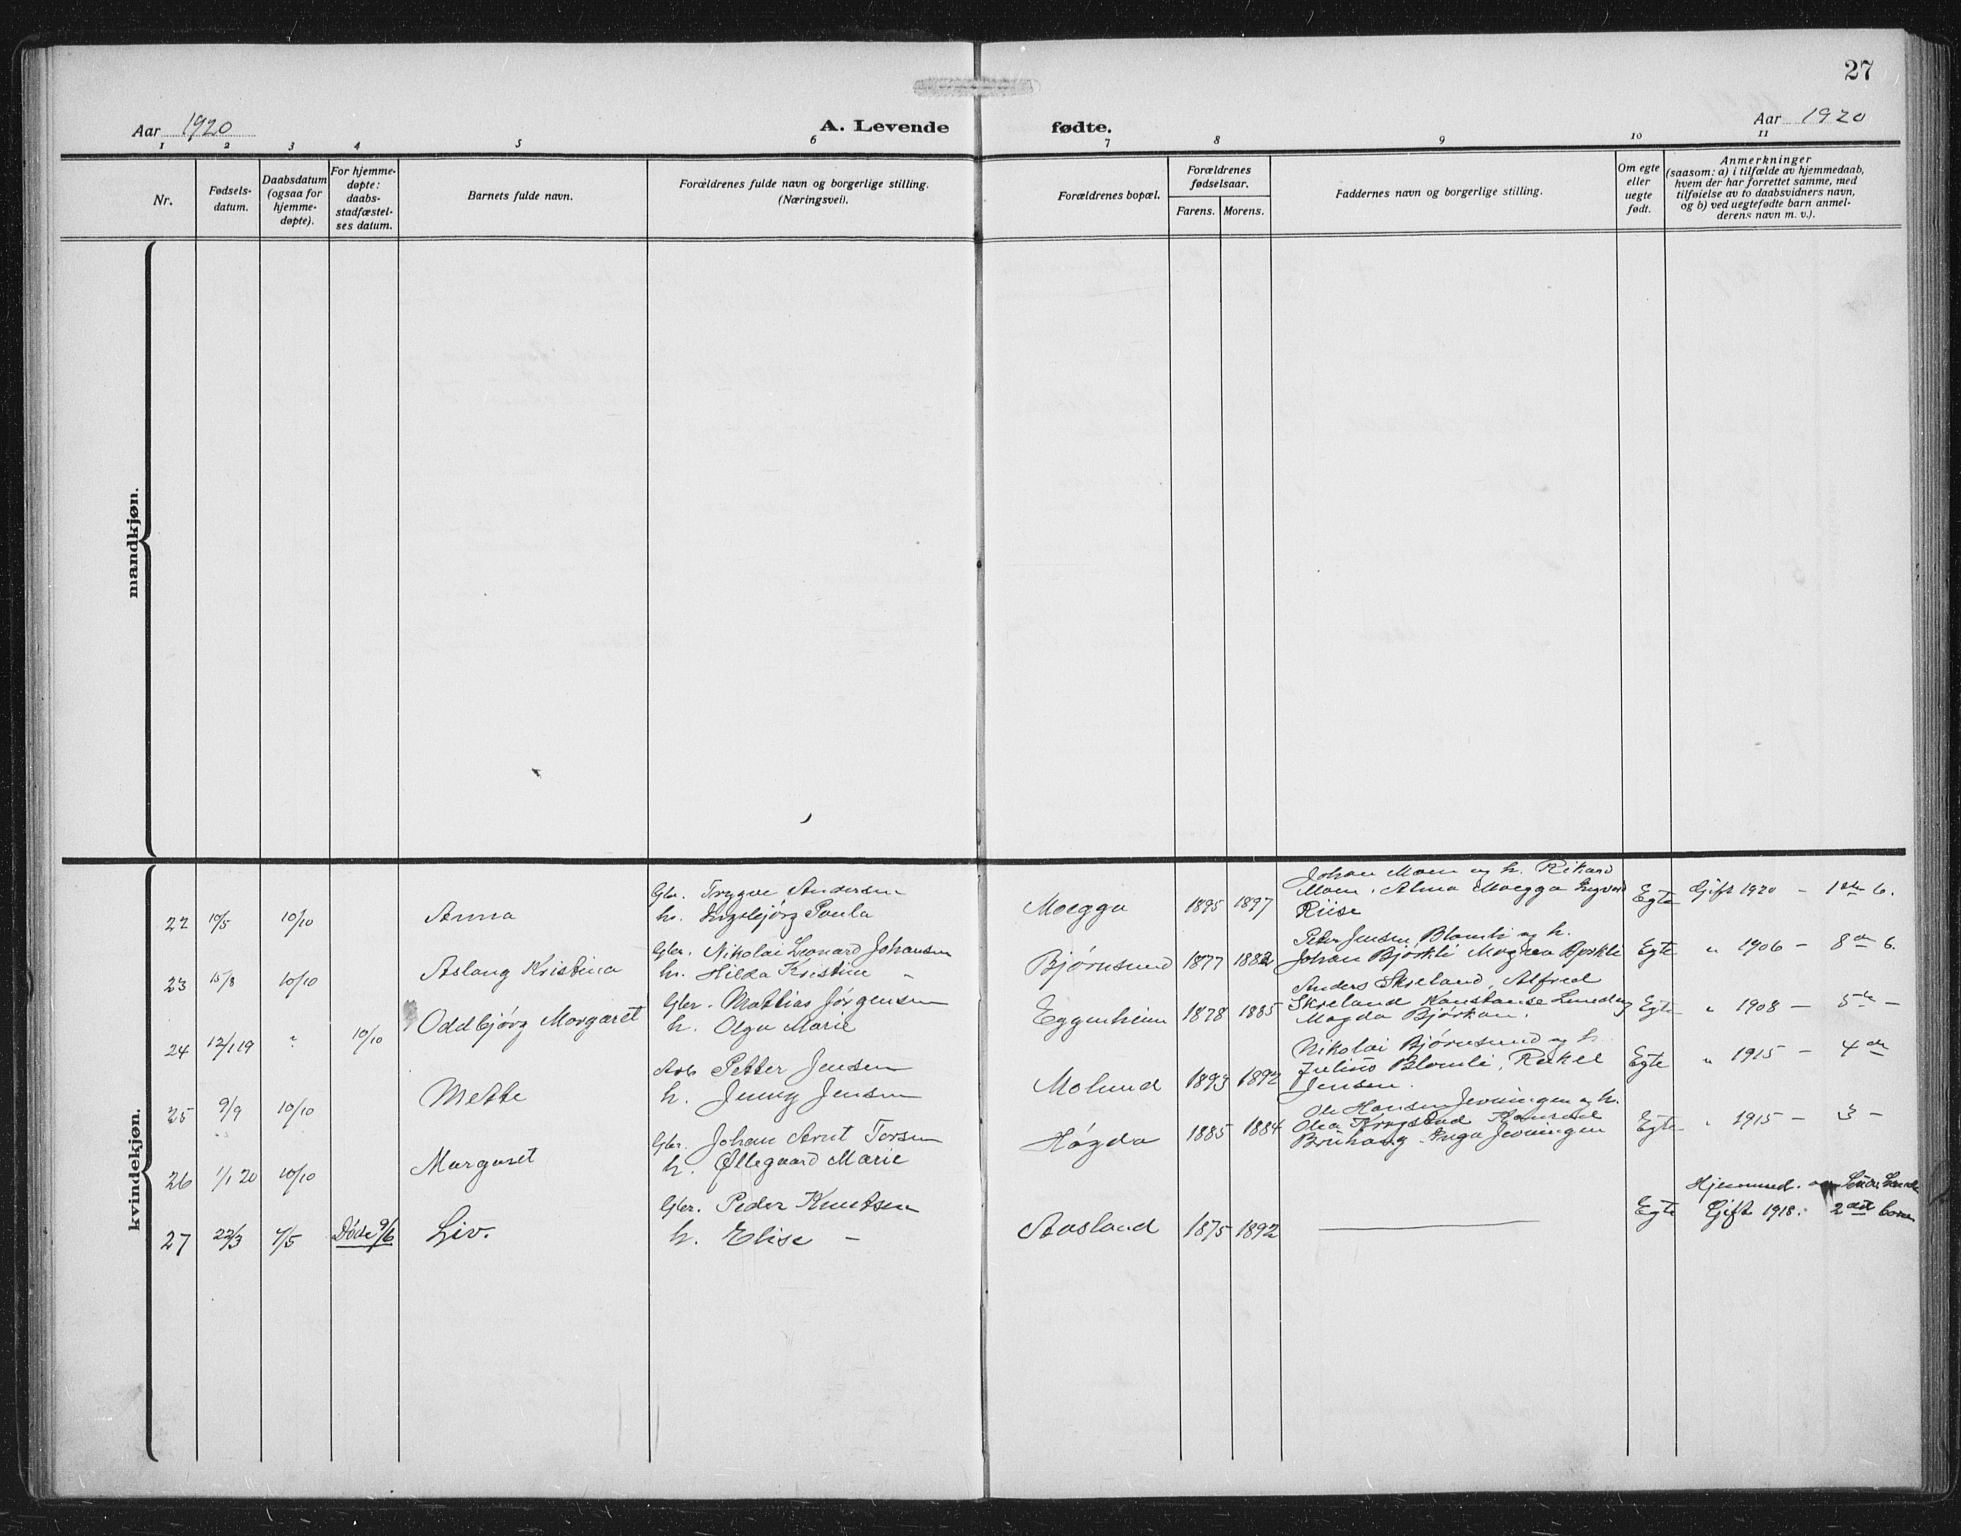 27
Aar 1920
A. Levende fødte.
Aar 1920
1 2 3 4 5 6 7 8 9 10 11
Nr.
Fødsels-
datum.
Daabsdatum
(ogsaa for
hjemme-
døpte).
For hjemme-
døpte:
daabs-
stadfæstel-
ses datum.
Barnets fulde navn.
Forældrenes fulde navn og borgerlige stilling.
(Næringsvei).
Forældrenes bopæl.
Forældrenes
fødselsaar.
Farens. Morens.
Faddernes navn og borgerlige stilling.
Om egte
eller
uegte
født.
Anmerkninger
(saasom: a) i tilfælde av hjemmedaab,
hvem der har forrettet samme, med
tilføielse av to daabsvidners navn,
og b) ved uegtefødte barn anmel-
derens navn m. v.).
mandkjøn.
kvindekjøn.
Gbr. Trygve Andersen
22 10/5 10/10 Anna h. Ingebjørg Paula
Moegga 1895 1897
Johan Moen og h. Rikard
Moen, Alma Moegga Ingvard
Riise
Egte Gift 1920 – 1ste b.
Gbr. Nikolai Leonard Johansen
23 15/8 10/10 Aslaug Kristina h. Hilda Kristine –
Bjørnsund 1877 1882
Peter Jensen, Blomli og h.
Johan Bjørkli Magna Bjørkli
Egte " 1906 – 8de b.
Gbr. Mattias Jørgensen
24 12/1 19 ? 10/10 Oddbjørg Margaret h. Olga Marie
Eggenheim 1878 1885
Anders Skreland, Alfred
Skreland Konstanse
Magda Bjørkan.
Egte " 1908 – 5te –
Arb. Petter Jensen
25 9/9 10/10 Mette h. Jenny Jensen
Molund 1893 1892
Nikolai Bjørnsund og h.
Julius Blomli, Rakel
Jensen.
Egte " 1915 – 4de
Gbr. Johan Arnt Torsen
26 1/1 20 10/10 Margaret h. Øllegaard Marie
Høgda 1885 1884
Ole Hansen Jevningen og h.
Olea Krogstad
Inga Jevningen
Egte " 1915 – 3 –
Gbr. Peder Knutsen
27 22/3 4/5 Døde 9/6 Liv. h. Elise –
Aasland 1875 1892
Egte
Gift 1918. 2det barn